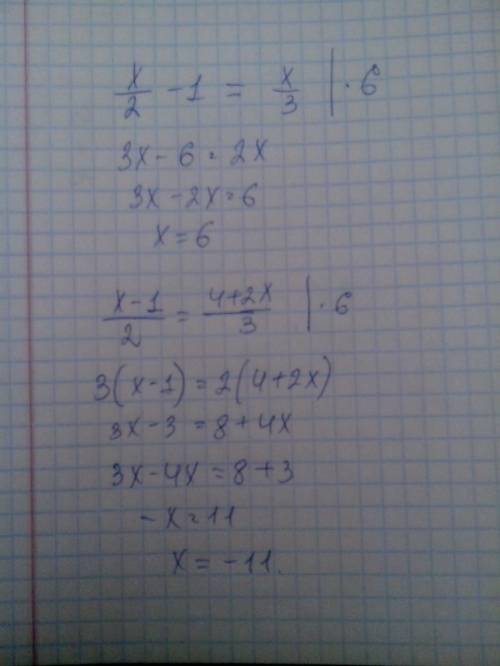 x/2 - 1 = x/3 | · 6
3x - 6 = 2x
3x - 2x = 6
x = 6
x-1/2 = 4+2x/3 | · 6
3(x-1) = 2(4+2x)
3x - 3 = 8 + 4x
3x - 4x = 8 + 3
-x = 11
x = -11.